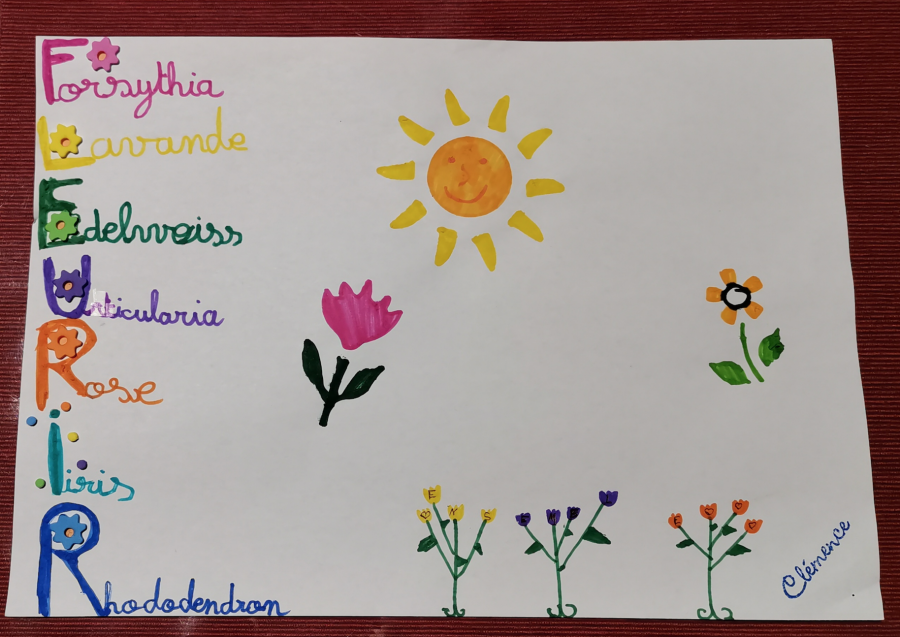 Forsythia
Lavande
Edelweiss
Urticularia
Rose
Iiris
Rhododendron
Clémence